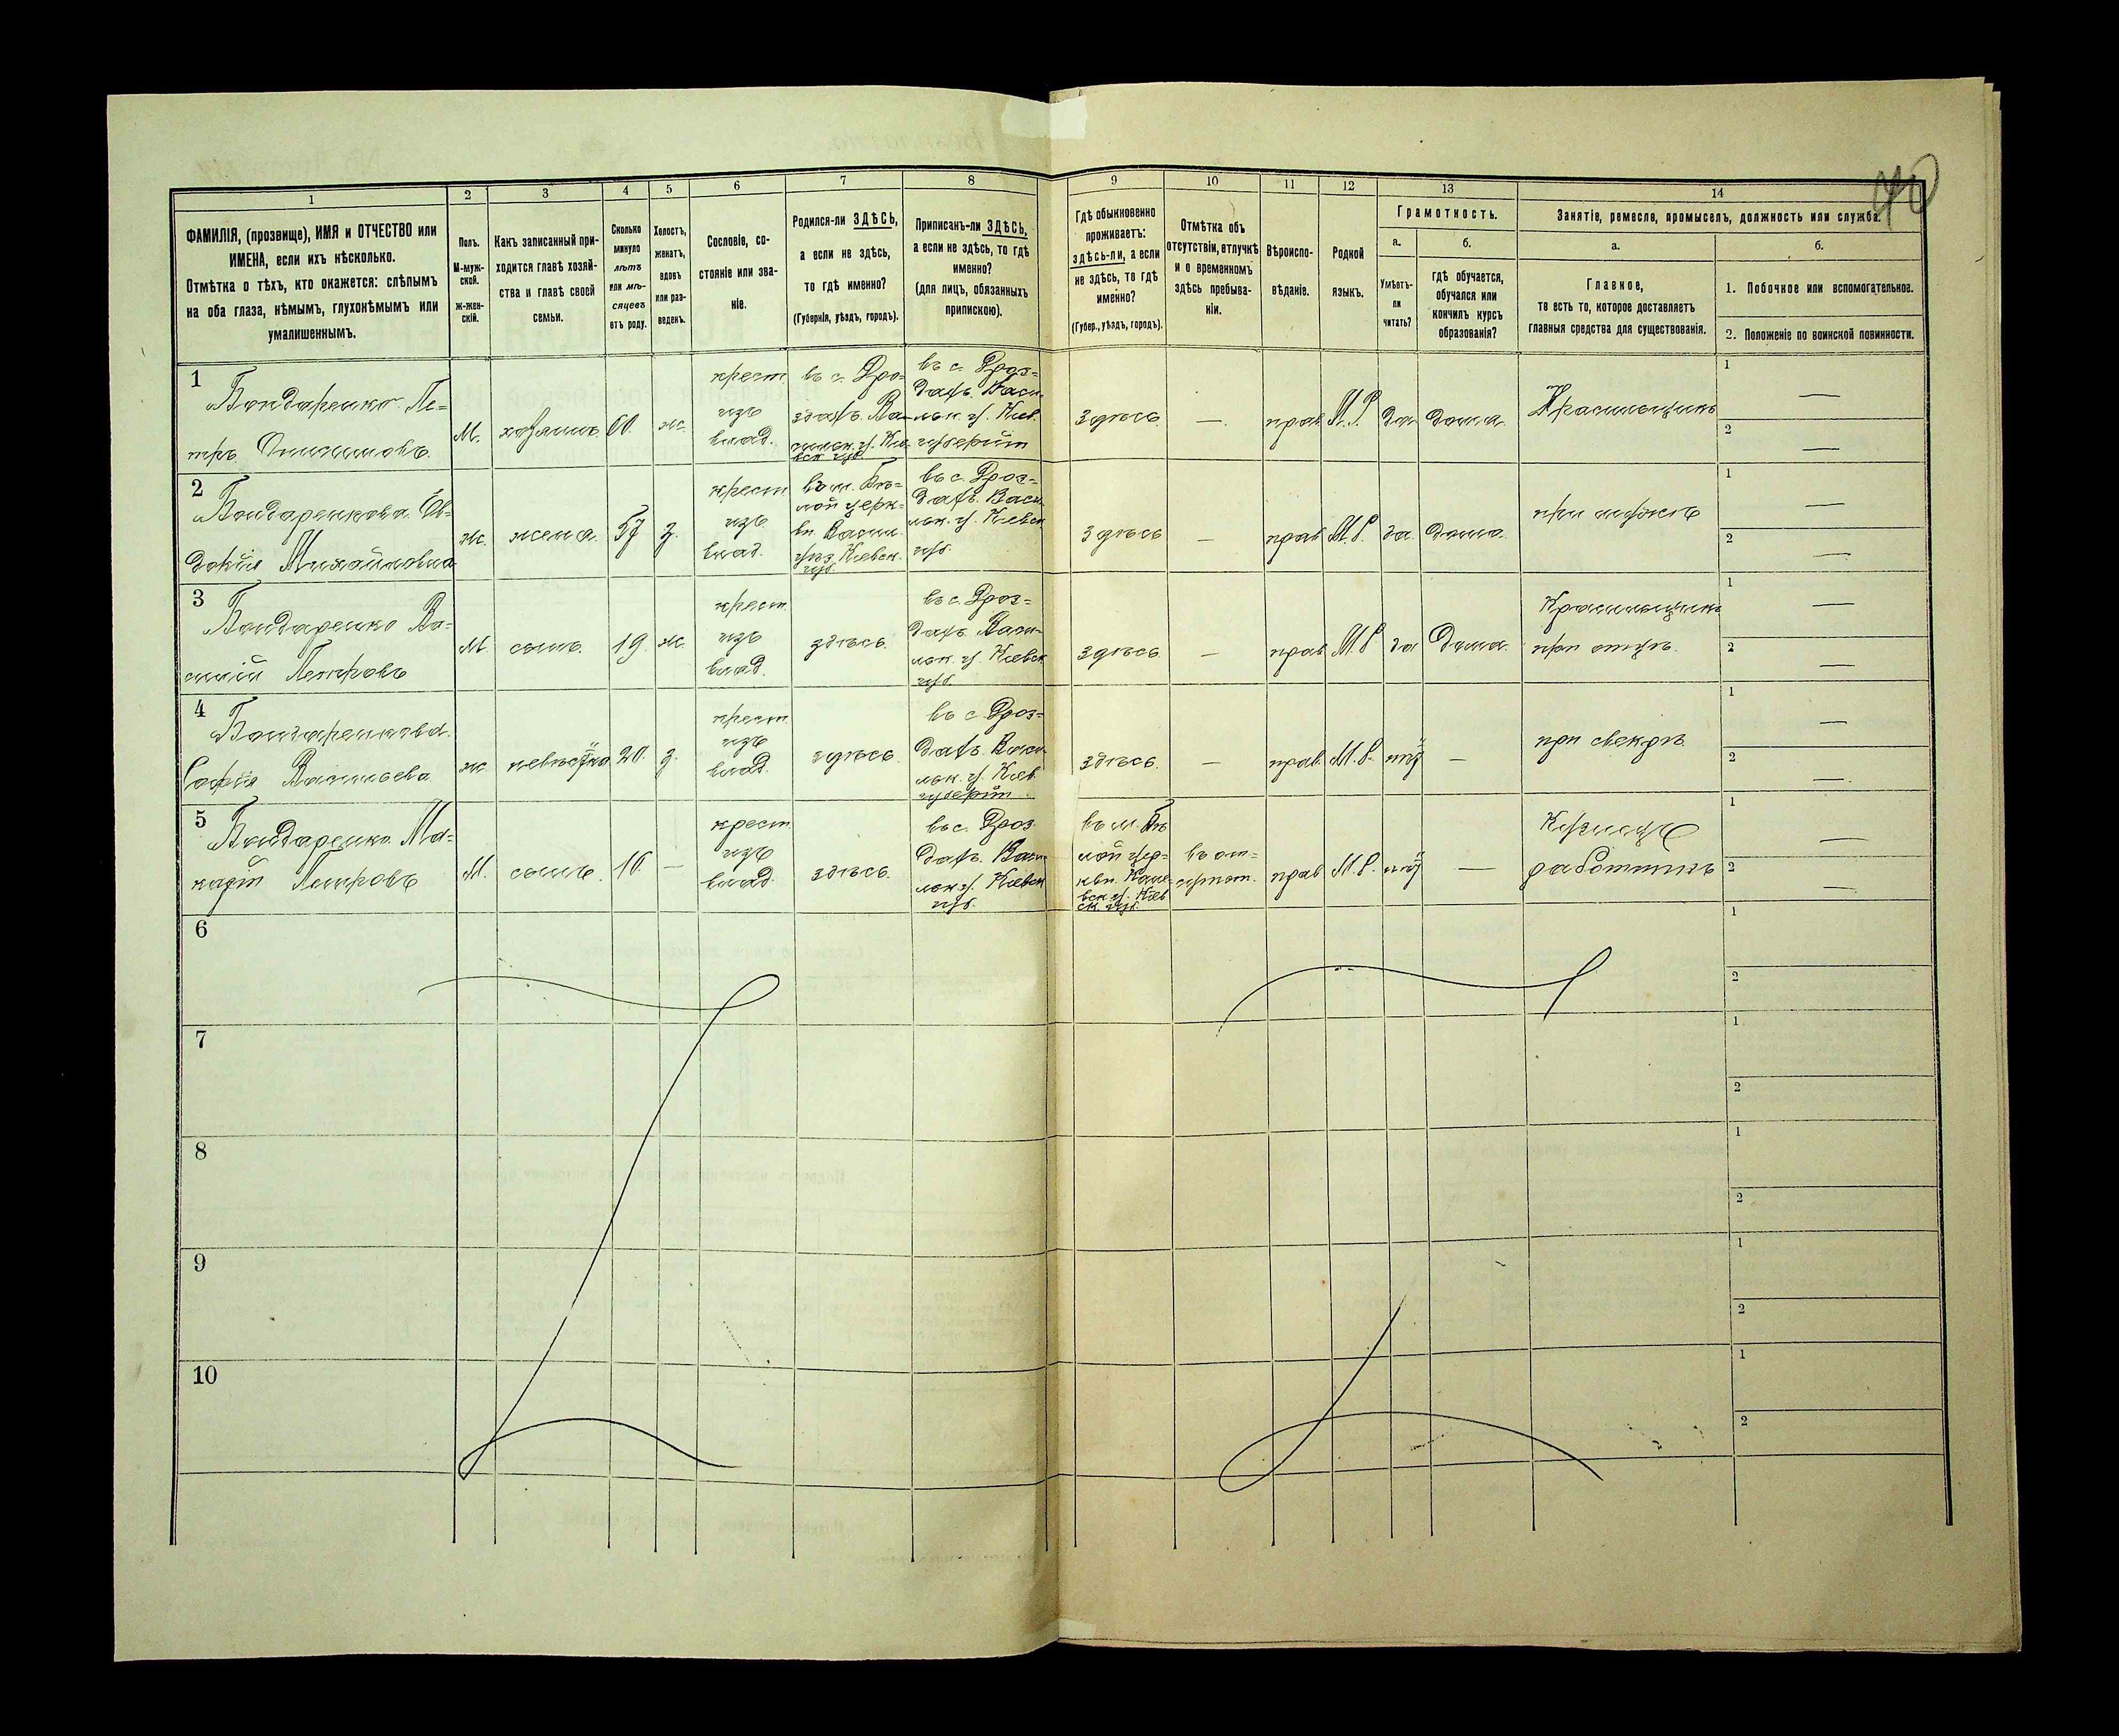 40
1 2 3 4 5 6 7 8 9 10 11 12 13 14
ФАМИЛІЯ, (прозвище), ИМЯ и ОТЧЕСТВО или
ИМЕНА, если ихъ нѣсколько.
Отмѣтка о тѣхъ, кто окажется: слѣпымъ
на оба глаза, нѣмымъ, глухонѣмымъ или
умалишеннымъ.
Полъ.
М-муж-
ской.
ж-жен-
скій.
Какъ записанный при-
ходится главѣ хозяй-
ства и главѣ своей
семьи.
Сколько
минуло
лѣтъ
или мѣ-
сяцевъ
отъ роду.
Холостъ,
женатъ,
вдовъ
или раз-
веденъ.
Сословіе, со-
стояніе или зва-
ніе.
Родился-ли ЗДѢСЬ,
а если не здѣсь,
то гдѣ именно?
(Губернія, уѣздъ, городъ).
Приписанъ-ли ЗДѢСЬ,
а если не здѣсь, то гдѣ
именно?
(для лицъ, обязанныхъ
припискою).
Гдѣ обыкновенно
проживаетъ:
здѣсь-ли, а если
не здѣсь, то гдѣ
именно?
(Губер., уѣздъ, городъ).
Отмѣтка объ
отсутствіи, отлучкѣ
и о временномъ
здѣсь пребыва-
ніи.
Вѣроиспо-
вѣданіе.
Родной
языкъ.
Грамотность.
а.
Умѣетъ-
ли
читать?
б.
гдѣ обучается,
обучался или
кончилъ курсъ
образованія?
Занятіе, ремесло, промыселъ, должность или служба.
а.
Главное,
то есть то, которое доставляетъ
главныя средства для существованія.
б.
1. Побочное или вспомогательное.
2. Положеніе по воинской повинности.
1
Бондаренко Пе-
тръ Онисимовъ
М.
хозяинъ
60.
ж.
крест
изъ
влад.
въ с. Дро-
здахъ Ва-
сильк. у. Кіе
вск. губ.
въ с. Дроз-
дахъ Васи-
льк. у. Кіев.
губерніи
здѣсь
—.
прав
М.Р.
да
дома
Красильщикъ
1 —
2 —
2
Бондаренкова Ев-
докія Михайловна
ж.
жена.
57
з.
крест
изъ
влад.
въ м. Бѣ-
лой церк-
ви Васил.
уѣз. Кіевск.
губ.
въ с. Дроз-
дахъ. Васи
льк. у. Кіевск.
губ.
здѣсь
—
прав
М.Р.
да
дома.
при мужѣ
1 —
2 —
3
Бондаренко Ва-
силій Петровъ
М
сынъ.
19.
ж.
крест.
изъ
влад.
здѣсь.
въ с. Дроз-
дахъ. Васи-
льк. у. Кіевск
губ.
здѣсь
—
прав
М.Р
да
дома.
Красильщикъ
при отцѣ.
1 —
2 —
4
Бондаренкова
Софія Васильева
ж.
невѣстка
20.
з.
крест.
изъ
влад.
здѣсь.
въ с. Дроз-
дахъ. Васи-
льк. у. Кіев.
губерніи
здѣсь.
—
прав.
М.Р.
нѣт
—
при свекрѣ.
1 —
2 —
5
Бондаренко Ма-
карій Петровъ
М.
сынъ.
16.
—
крест.
изъ
влад.
здѣсь.
въ с. Дроз
дахъ. Васи-
льк у. Кіевск
губ.
въ м. Бѣ
лой цер-
кви.
вск у. Кіев
ск. губ.
въ от-
прав
М.Р.
нѣт
—
Кузнецъ
работникъ
1 —
2 —
6
1
2
7
1
2
8
1
2
9
1
2
10
1
2